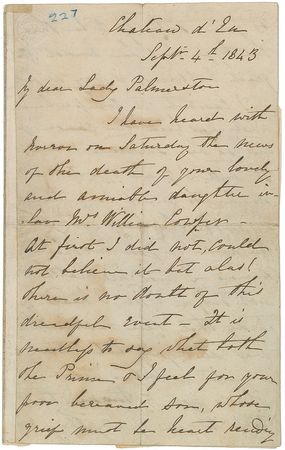 227
Chateau d'Eu
Septr 4th 1843
My dear Lady Palmerston
I have heard with
horror on Saturday the news
of the death of your lovely
and amiable daughter in-
law Mrs William Cowper -
At first I did not, could
not believe it but alas!
there is no doubt of this
dreadful event - It is
needless to say what both
the Prince & I feel for your
poor bereaved son, whose
grief must be heart rending